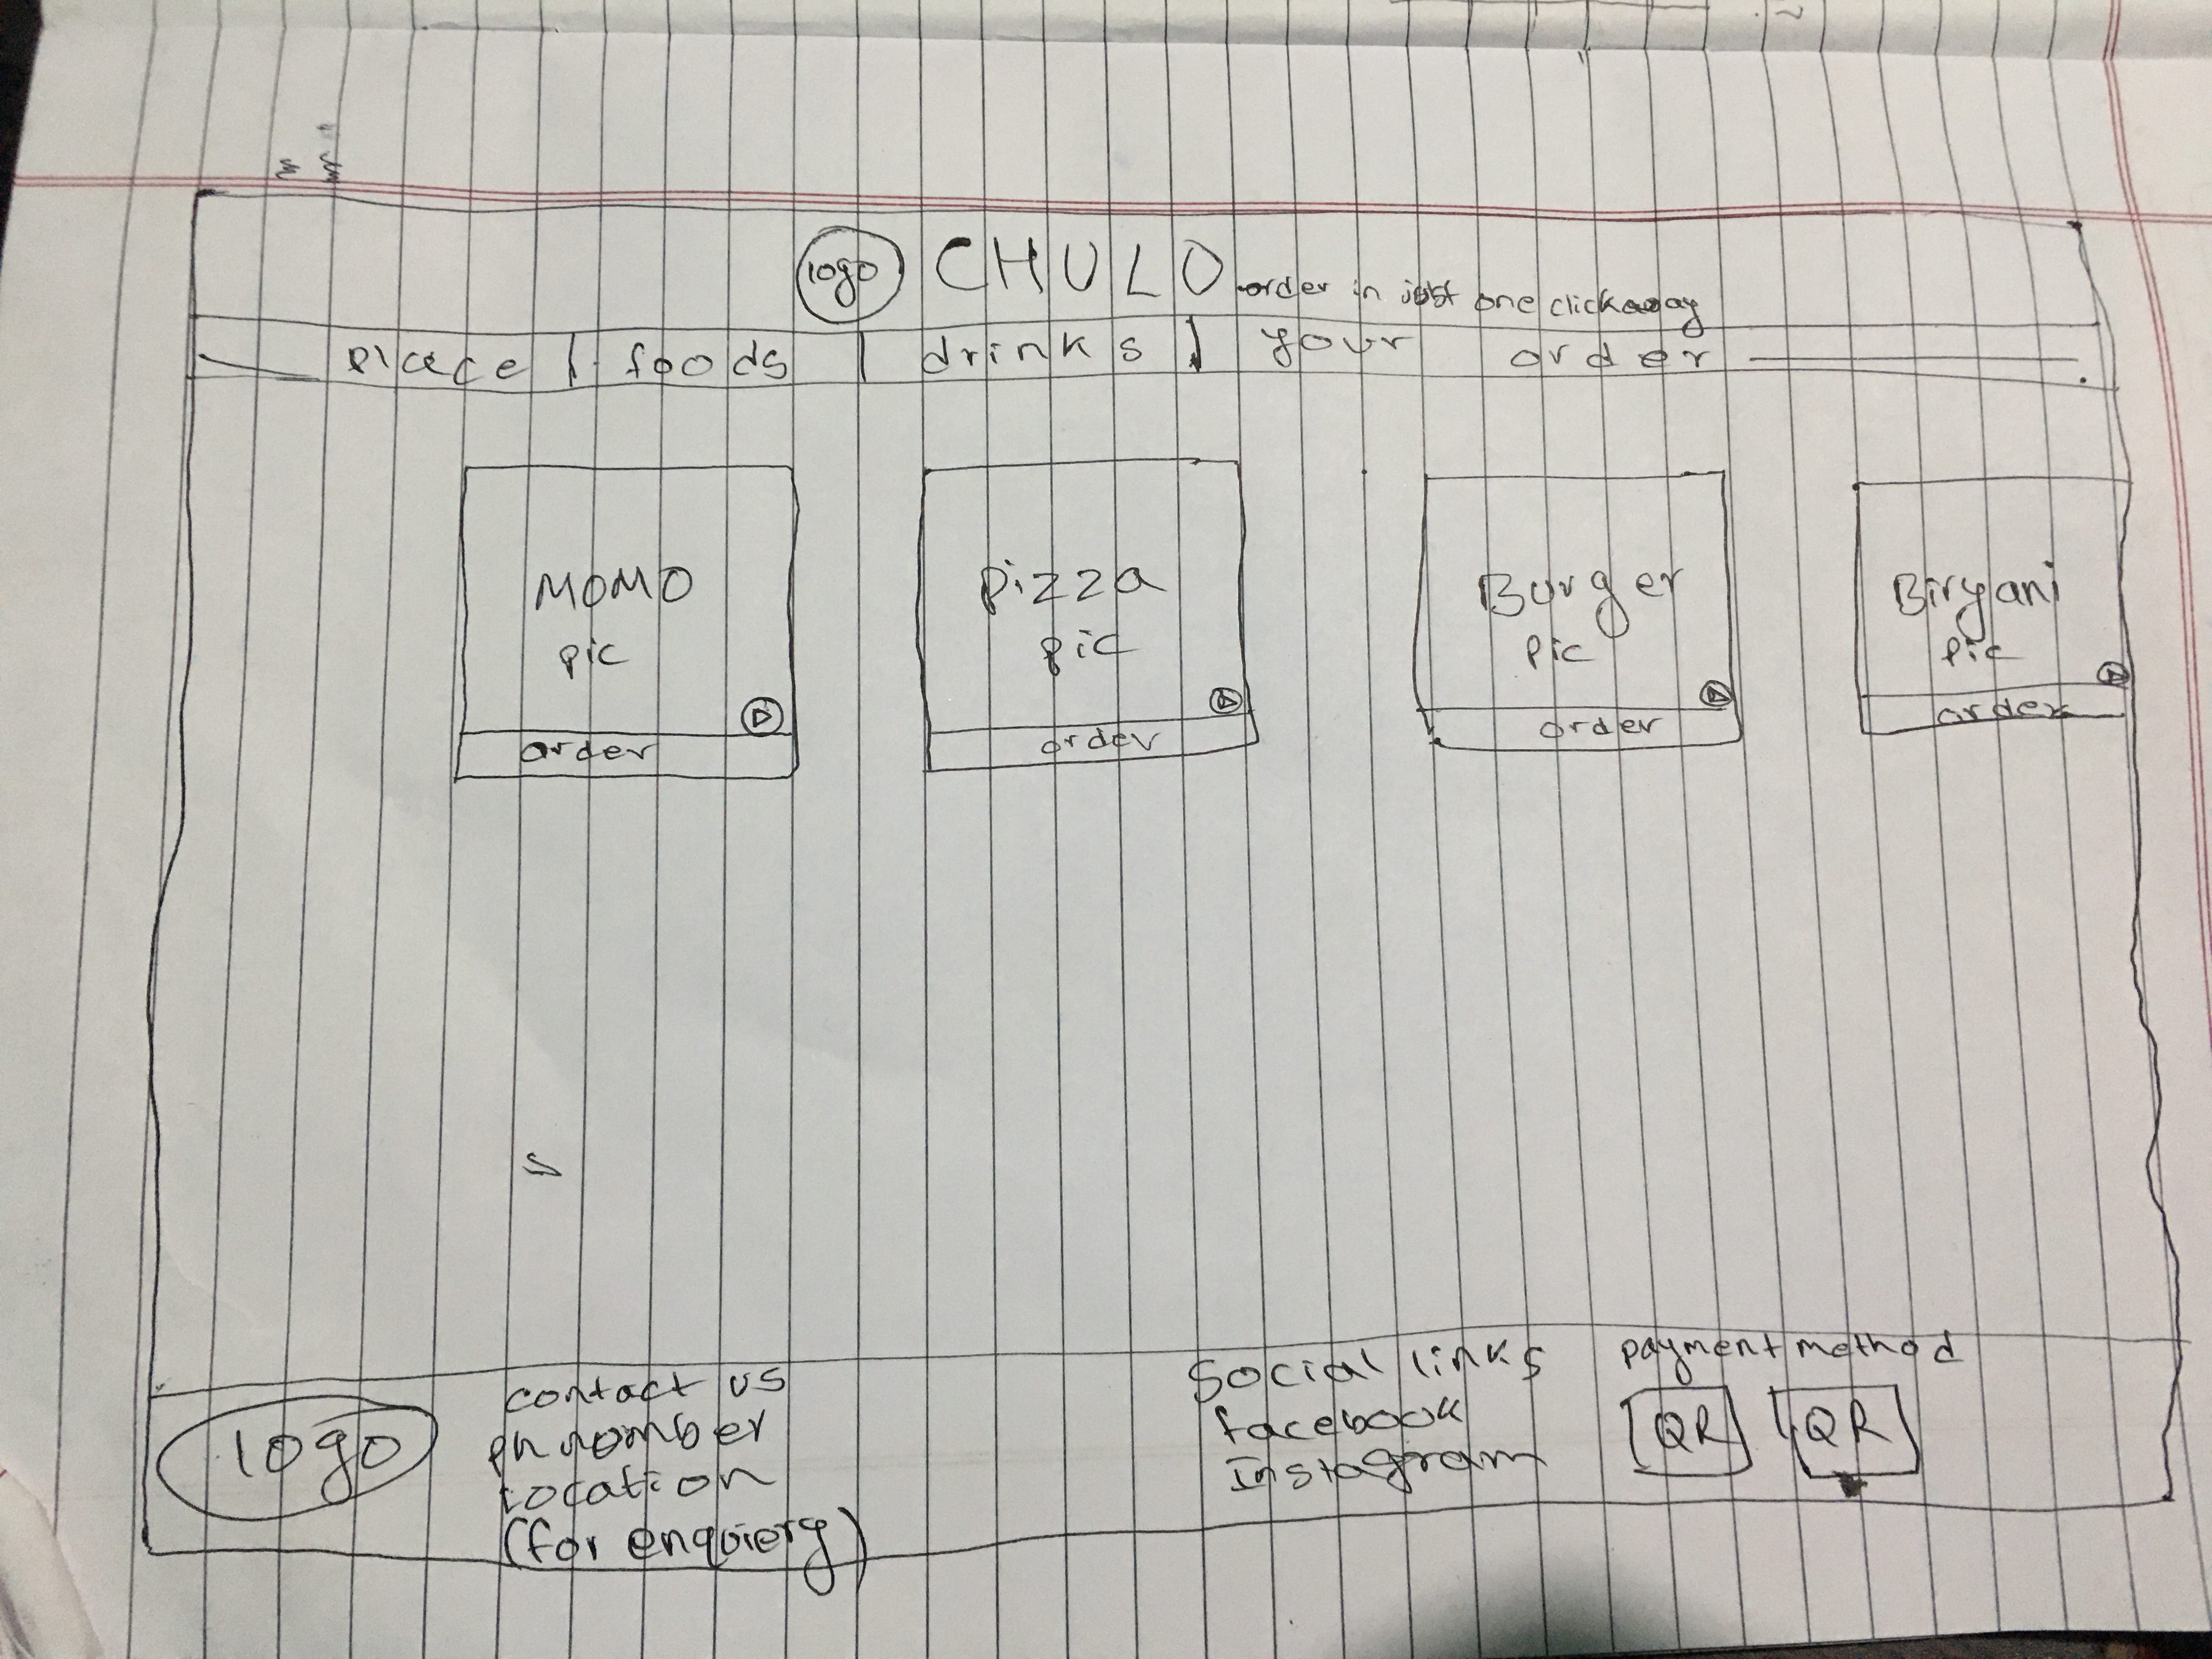 logo CHULO order in just one click away
place | foods | drinks | your order
MOMO
pic
order
pizza
pic
order
Burger
pic
order
Biryani
pic
order
logo
contact us
ph number
location
(for enquiery)
Social links
facebook
Instagram
payment method
QR QR